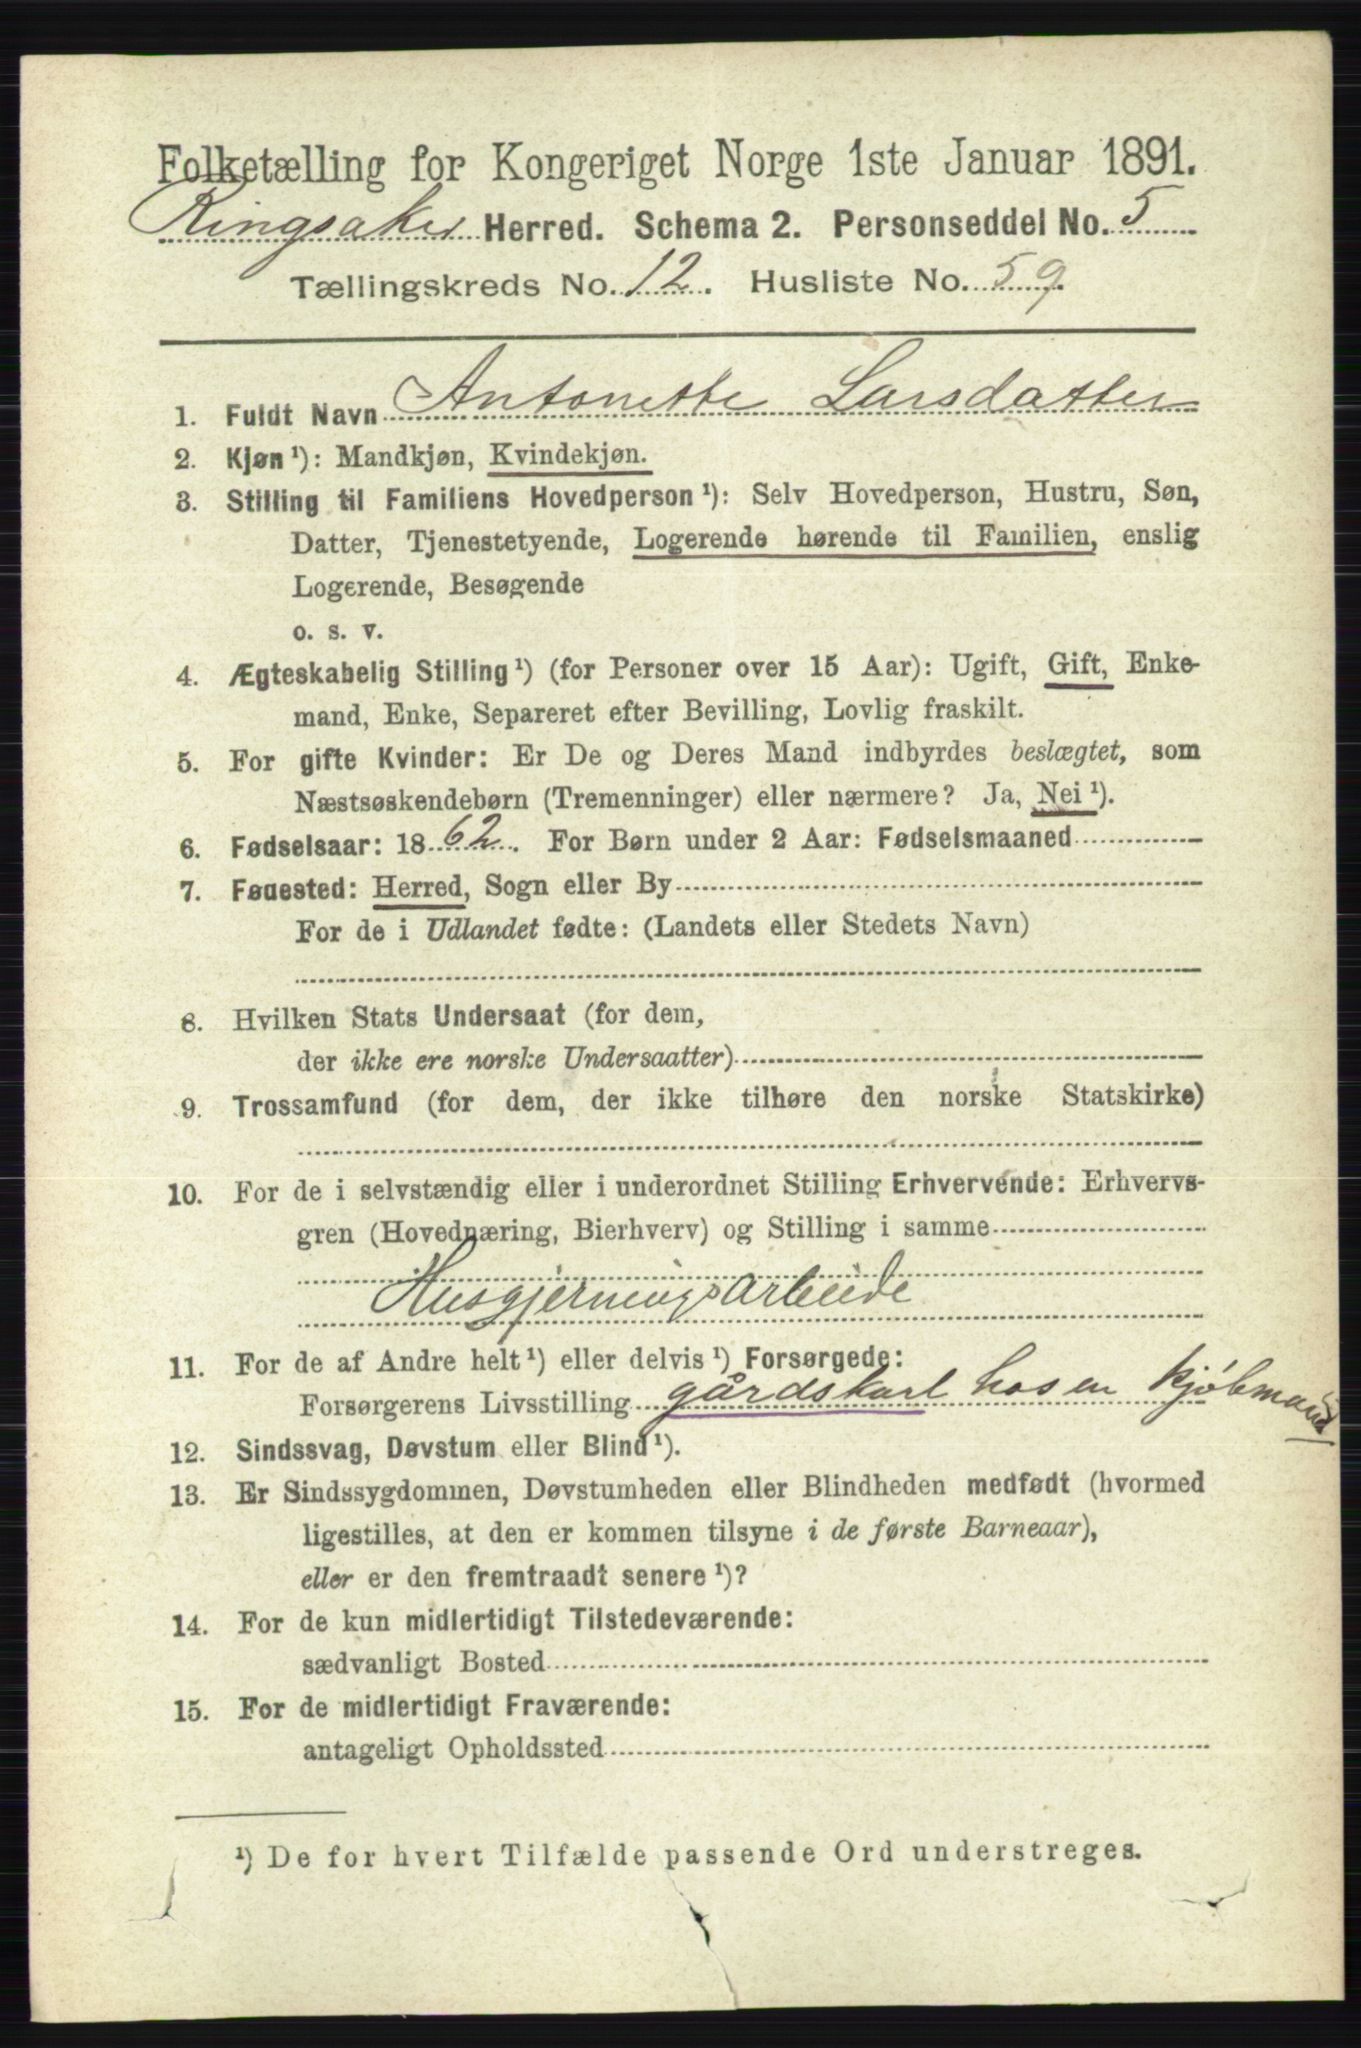 Folketælling for Kongeriget Norge 1ste Januar 1891.
Ringsaker Herred. Schema 2. Personseddel No. 5
Tællingskreds No. 12. Husliste No. 59.
1. Fuldt Navn Antonette Larsdatter
2. Kjøn ¹): Mandkjøn, Kvindekjøn.
3. Stilling til Familiens Hovedperson ¹): Selv Hovedperson, Hustru, Søn,
Datter, Tjenestetyende, Logerende hørende til Familien, enslig
Logerende, Besøgende
o. s. v.
4. Ægteskabelig Stilling ¹) (for Personer over 15 Aar): Ugift, Gift, Enke-
mand, Enke, Separeret efter Bevilling, Lovlig fraskilt.
5. For gifte Kvinder: Er De og Deres Mand indbyrdes beslægtet, som
Næstsøskendebørn (Tremenninger) eller nærmere? Ja, Nei ¹).
6. Fødselsaar: 1862. For Børn under 2 Aar: Fødselsmaaned
7. Fødested: Herred, Sogn eller By
For de i Udlandet fødte: (Landets eller Stedets Navn)
8. Hvilken Stats Undersaat (for dem,
der ikke ere norske Undersaatter)
9. Trossamfund (for dem, der ikke tilhøre den norske Statskirke)
10. For de i selvstændig eller i underordnet Stilling Erhvervende: Erhvervs-
gren (Hovednæring, Bierhverv) og Stilling i samme
Husgjerningsarbeide
11. For de af Andre helt ¹) eller delvis ¹) Forsørgede:
Forsørgerens Livsstilling gårdskarl hos en kjøbmand
12. Sindssvag, Døvstum eller Blind ¹).
13. Er Sindssygdommen, Døvstumheden eller Blindheden medfødt (hvormed
ligestilles, at den er kommen tilsyne i de første Barneaar),
eller er den fremtraadt senere ¹)?
14. For de kun midlertidigt Tilstedeværende:
sædvanligt Bosted
15. For de midlertidigt Fraværende:
antageligt Opholdssted
¹) De for hvert Tilfælde passende Ord understreges.